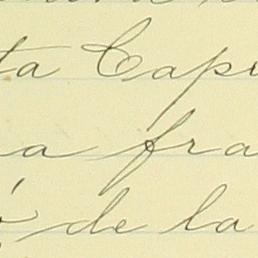 ta Capi
a fra
ó de la